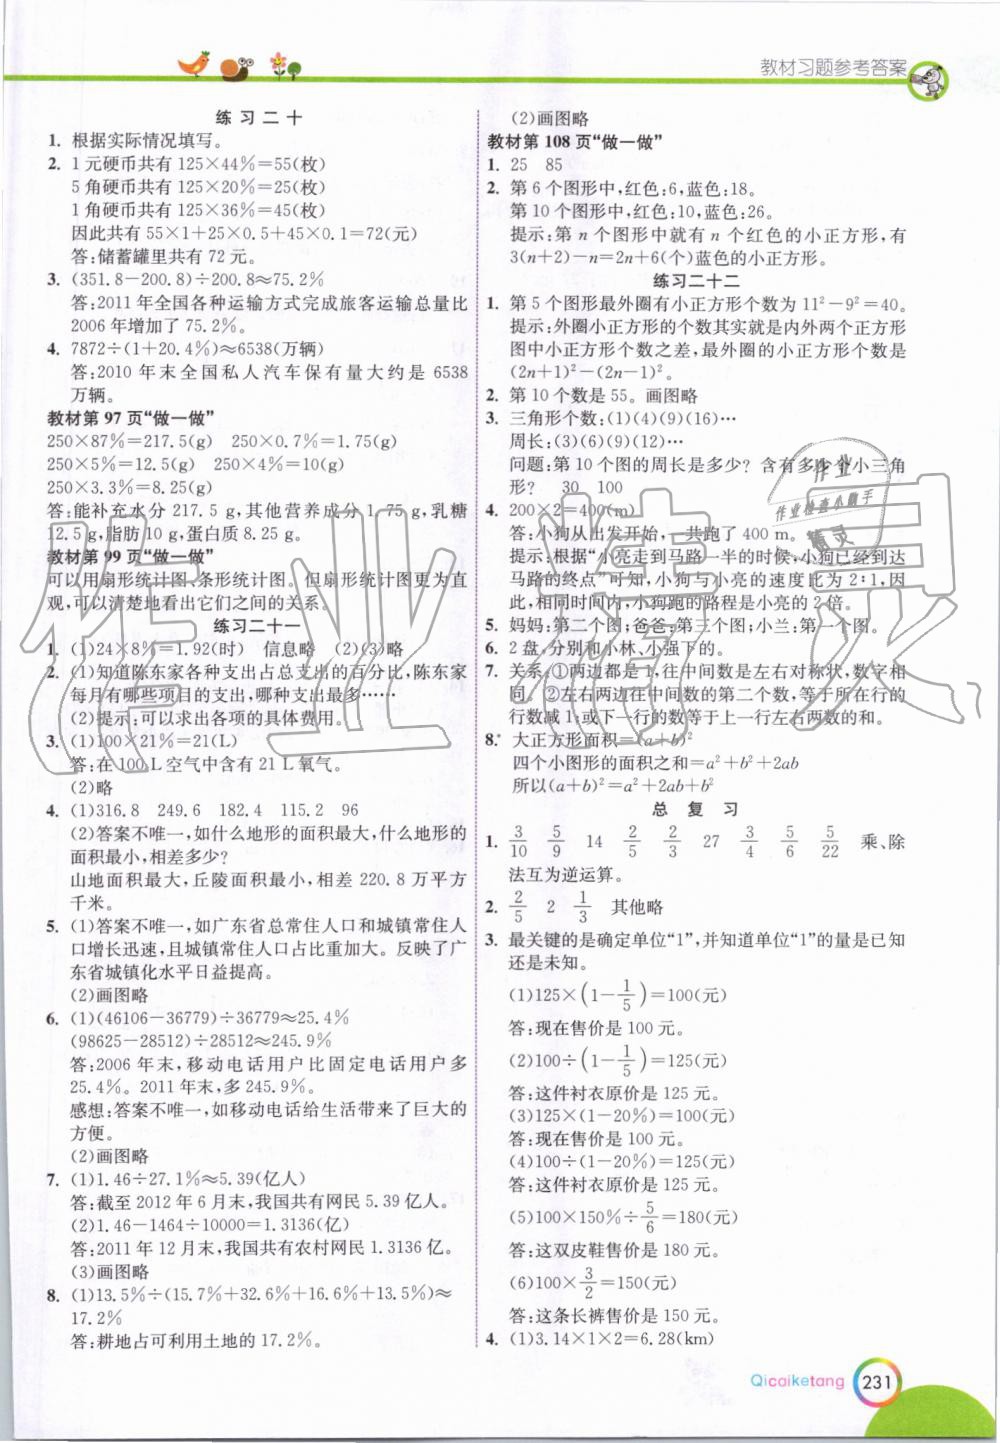 教材习题参考答案
练习二十
1. 根据实际情况填写。
2. 1元硬币共有125×44%=55(枚)
5角硬币共有125×20%=25(枚)
1角硬币共有125×36%=45(枚)
因此共有55×1+25×0.5+45×0.1=72(元)
答:储蓄罐里共有72元。
3. (351.8-200.8)÷200.8≈75.2%
答:2011年全国各种运输方式完成旅客运输总量比
2006年增加了75.2%。
4. 7872÷(1+20.4%)≈6538(万辆)
答:2010年末全国私人汽车保有量大约是6538
万辆。
教材第97页“做一做”
250×87%=217.5(g) 250×0.7%=1.75(g)
250×5%=12.5(g) 250×4%=10(g)
250×3.3%=8.25(g)
答:能补充水分217.5 g,其他营养成分1.75 g,乳糖
12.5 g,脂肪10 g,蛋白质8.25 g。
教材第99页“做一做”
可以用扇形统计图、条形统计图。但扇形统计图更为直
观,可以清楚地看出它们之间的关系。
练习二十一
1. (1)24×8%=1.92(时) 信息略 (2)(3)略
2. (1)知道陈东家各种支出占总支出的百分比,陈东家
每月有哪些项目的支出,哪种支出最多……
(2)提示:可以求出各项的具体费用。
3. (1)100×21%=21(L)
答:在100 L空气中含有21 L氧气。
(2)略
4. (1)316.8 249.6 182.4 115.2 96
(2)答案不唯一,如什么地形的面积最大,什么地形的
面积最小,相差多少?
山地面积最大,丘陵面积最小,相差220.8万平方
千米。
5. (1)答案不唯一,如广东省总常住人口和城镇常住人
口增长迅速,且城镇常住人口占比重加大。反映了广
东省城镇化水平日益提高。
(2)画图略
6. (1)(46106-36779)÷36779≈25.4%
(98625-28512)÷28512≈245.9%
答:2006年末,移动电话用户比固定电话用户多
25.4%。2011年末,多245.9%。
感想:答案不唯一,如移动电话给生活带来了巨大的
方便。
(2)画图略
7. (1)1.46÷27.1%≈5.39(亿人)
答:截至2012年6月末,我国共有网民5.39亿人。
(2)1.46-1464÷10000=1.3136(亿)
答:2011年12月末,我国共有农村网民1.3136亿。
(3)画图略
8. (1)13.5%÷(15.7%+32.6%+16.6%+13.5%)≈
17.2%
答:耕地占可利用土地的17.2%。
(2)画图略
教材第108页“做一做”
1. 25 85
2. 第6个图形中,红色:6,蓝色:18。
第10个图形中,红色:10,蓝色:26。
提示:第n个图形中就有n个红色的小正方形,有
3(n+2)-n=2n+6(个)蓝色的小正方形。
练习二十二
1. 第5个图形最外圈有小正方形个数为11²-9²=40。
提示:外圈小正方形的个数其实就是内外两个正方形
图中小正方形个数之差,最外圈的小正方形个数是
(2n+1)²-(2n-1)²。
2. 第10个数是55。画图略
3. 三角形个数:(1)(4)(9)(16)…
周长:(3)(6)(9)(12)…
问题:第10个图的周长是多少?含有多少个小三角
形? 30 100
4. 200×2=400(m)
答:小狗从出发开始,一共跑了400 m。
提示:根据“小亮走到马路一半的时候,小狗已经到达
马路的终点”可知,小狗与小亮的速度比为2:1,因
此,相同时间内,小狗跑的路程是小亮的2倍。
5. 妈妈:第二个图;爸爸:第三个图;小兰:第一个图。
6. 2盘,分别和小林、小强下的。
7. 关系:①两边都是1,往中间数是左右对称状,数字相
同。②左右两边往中间数的第二个数,等于所在行的
行数减1;或下一行的数等于上一行左右两数的和。
8.* 大正方形面积=(a+b)²
四个小图形的面积之和=a²+b²+2ab
所以(a+b)²=a²+2ab+b²
总复习
1. 3/10 5/9 14 2/5 2/3 27 3/4 5/6 5/22 乘、除
法互为逆运算。
2. 2/5 2 1/3 其他略
3. 最关键的是确定单位“1”,并知道单位“1”的量是已知
还是未知。
(1)125×(1-1/5)=100(元)
答:现在售价是100元。
(2)100÷(1-1/5)=125(元)
答:这件衬衣原价是125元。
(3)125×(1-20%)=100(元)
答:现在售价是100元。
(4)100÷(1-20%)=125(元)
答:这件衬衣原价是125元。
(5)100×150%÷5/6=180(元)
答:这双皮鞋售价是180元。
(6)100×3/2=150(元)
答:这条长裤售价是150元。
4. (1)3.14×1×2=6.28(km)
作业
作业检查小助手
精灵
作业精灵
Qicaiketang 231